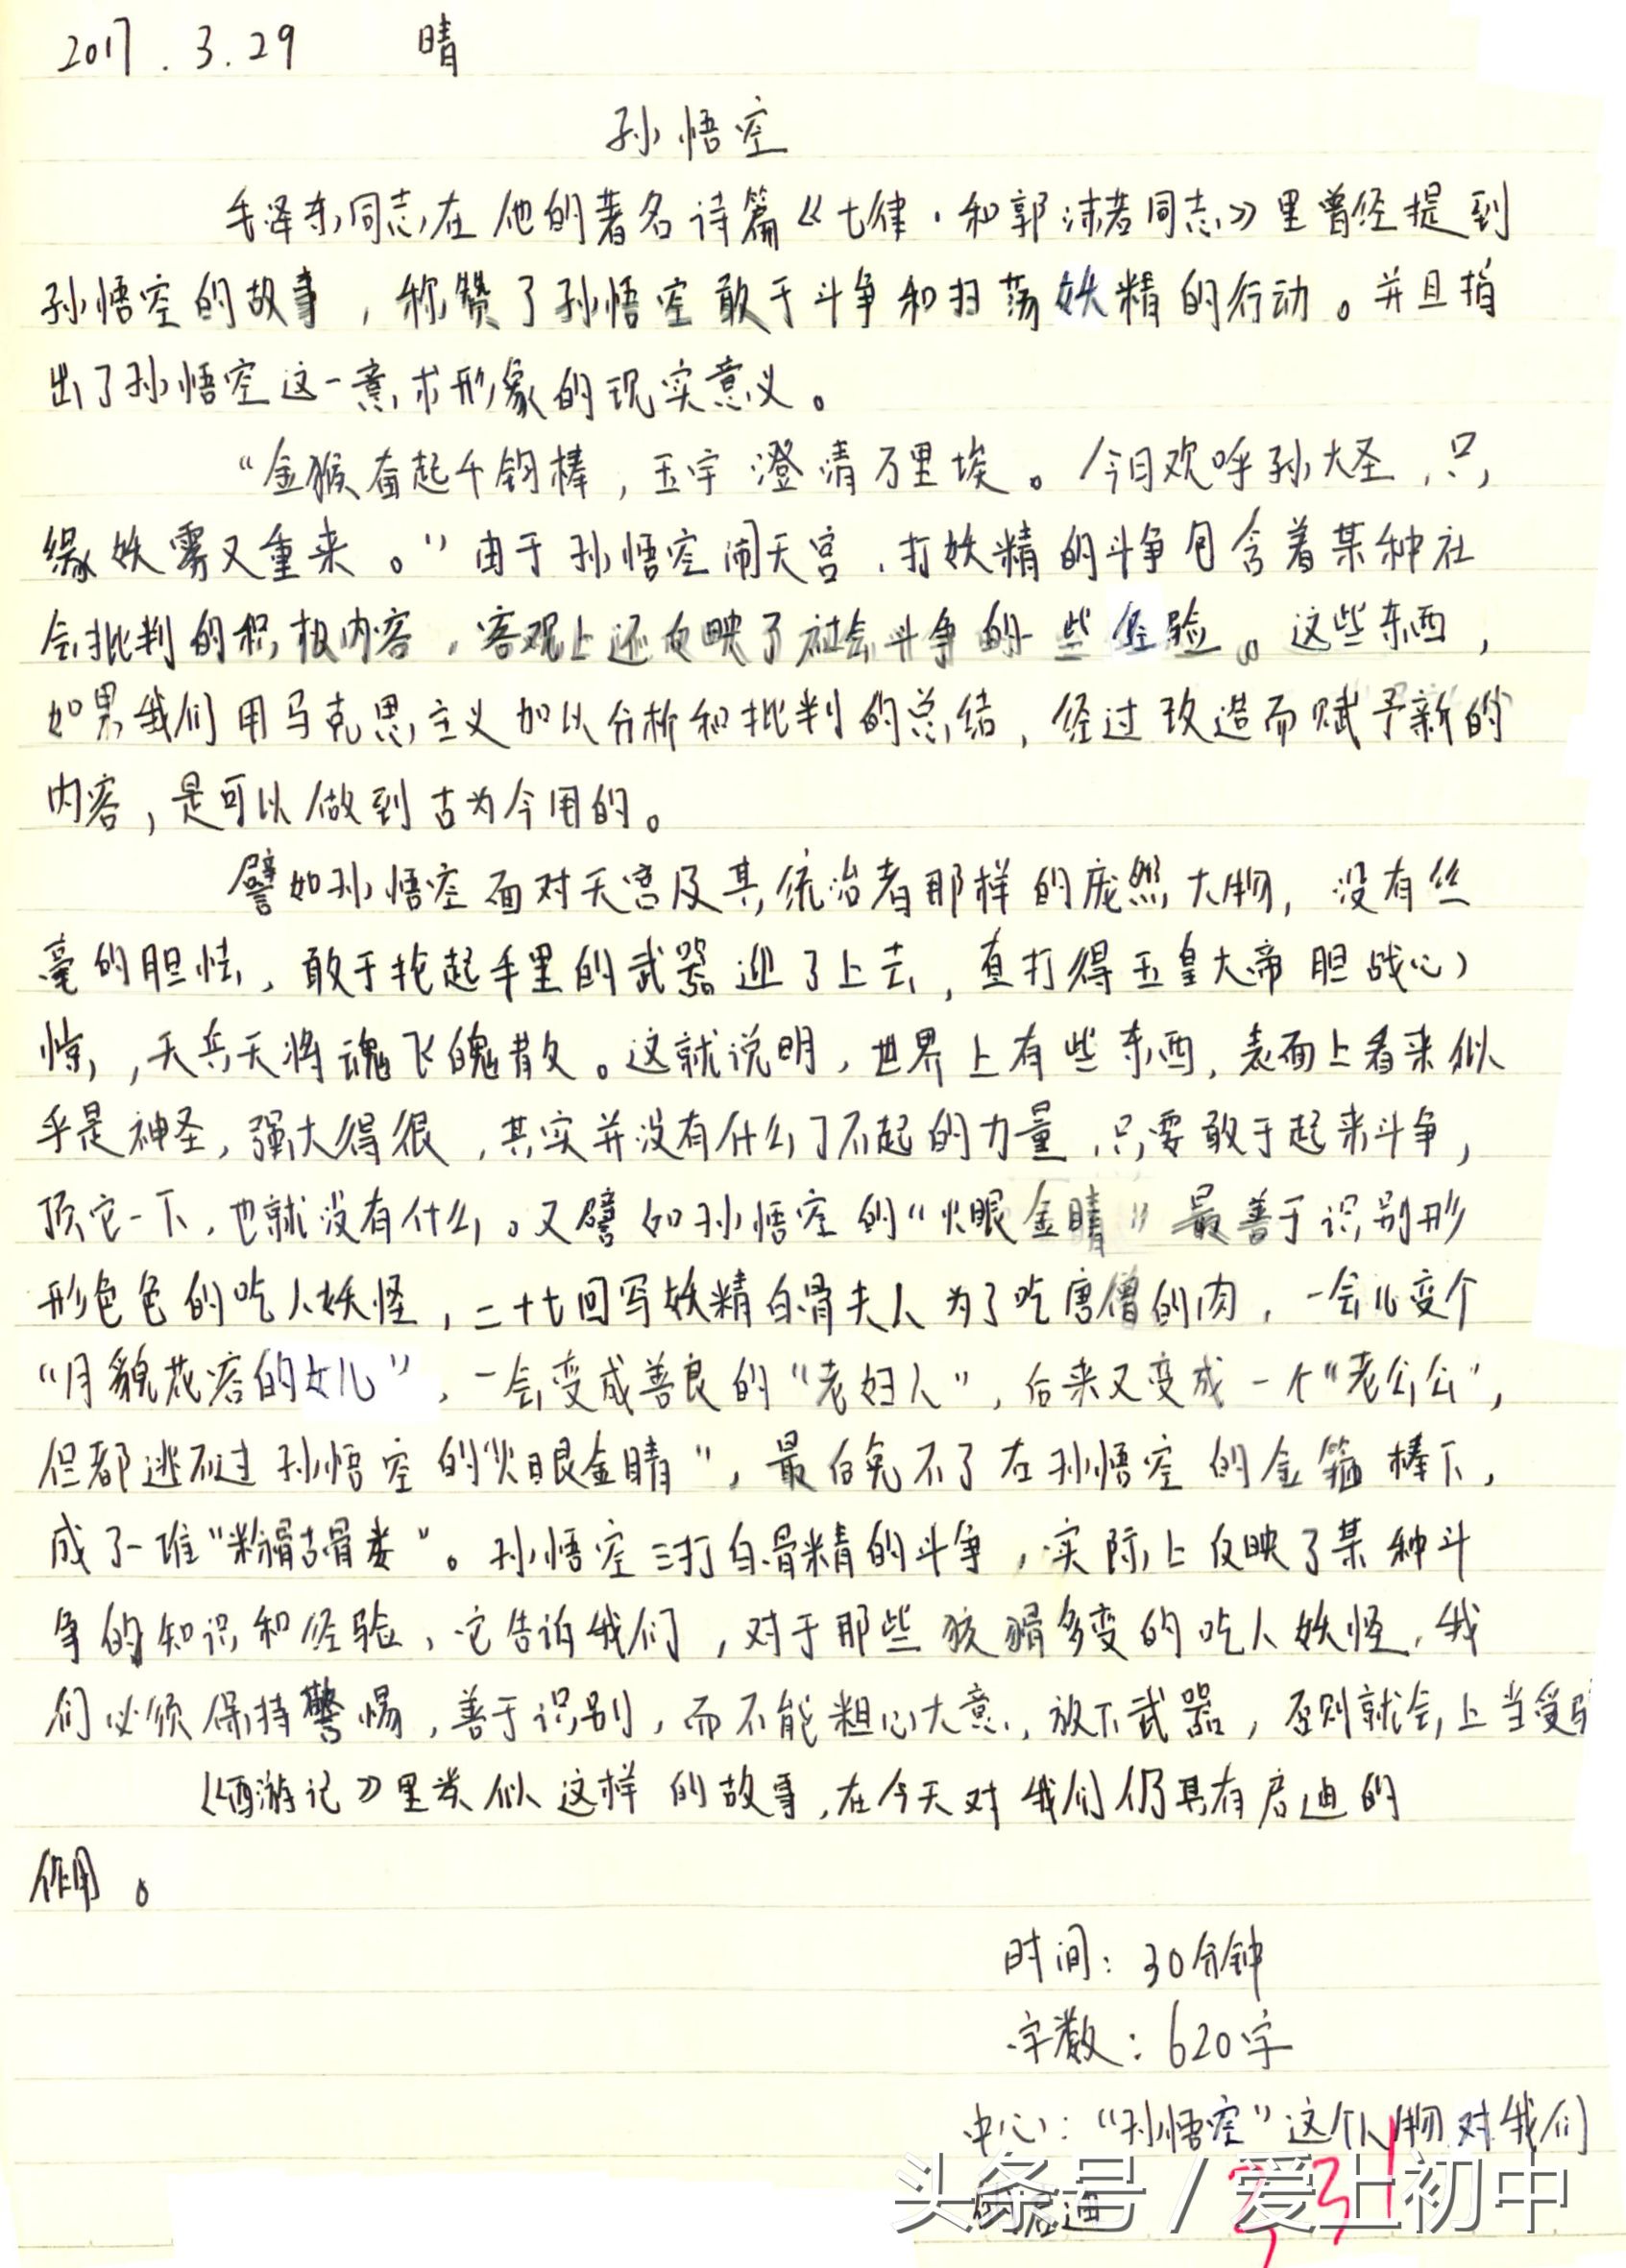 2017.3.29 晴
孙悟空
毛泽东同志在他的著名诗篇《七律·和郭沫若同志》里曾经提到
孙悟空的故事，称赞了孙悟空敢于斗争和扫荡妖精的行动。并且指
出了孙悟空这一意术形象的现实意义。
“金猴奋起千钧棒，玉宇澄清万里埃。今日欢呼孙大圣，只
缘妖雾又重来。”由于孙悟空闹天宫，打妖精的斗争包含着某种社
会批判的积极内容，客观上还反映了社会斗争的一些经验。这些东西，
如果我们用马克思主义加以分析和批判的总结，经过改造而赋予新的
内容，是可以做到古为今用的。
譬如孙悟空面对天宫及其统治者那样的庞然大物，没有丝
毫的胆怯，敢于抡起手里的武器迎了上去，直打得玉皇大帝胆战心
惊，天兵天将魂飞魄散。这就说明，世界上有些东西，表面上看来似
乎是神圣，强大得很，其实并没有什么了不起的力量，只要敢于起来斗争，
顶它一下，也就没有什么。又譬如孙悟空的“火眼金睛”最善于识别形
形色色的吃人妖怪，二十七回写妖精白骨夫人为了吃唐僧的肉，一会儿变个
“月貌花容的女儿”，一会变成善良的“老妇人”，后来又变成一个“老公公”，
但都逃不过孙悟空的“火眼金睛”，最后免不了在孙悟空的金箍棒下，
成了一堆“粉骨骷髅”。孙悟空三打白骨精的斗争，实际上反映了某种斗
争的知识和经验，它告诉我们，对于那些狡猾多变的吃人妖怪，我
们必须保持警惕，善于识别，而不能粗心大意，放下武器，否则就会上当受骗
《西游记》里类似这样的故事，在今天对我们仍具有启迪的
作用。
时间：30分钟
字数：620字
中心：“孙悟空”这个人物对我们
的启迪
3.31
头条号/爱上初中